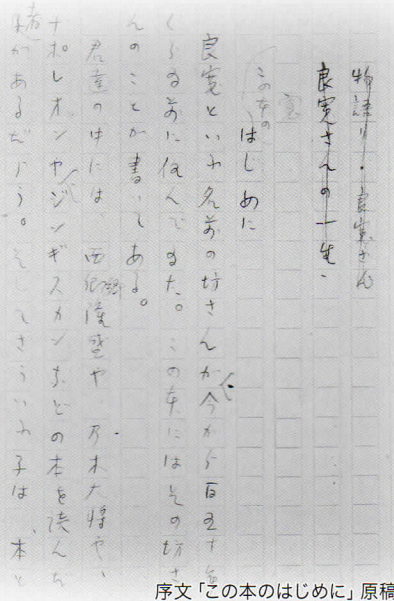 物語り・良寛さん
良寛さんの一生・
寛
この本の
はじめに
良寛といふ名前の坊さんが今から百五十年
くらゐ前に住んでゐた。この本にはその坊さ
んのことが書いてある。
君達の中には 西郷隆盛や、乃木大將や、
郷
ナポレオンやジンギスカンなどの本を読んだ
者があるだらう。そしてさういふ子は、本と
序文「この本のはじめに」原稿